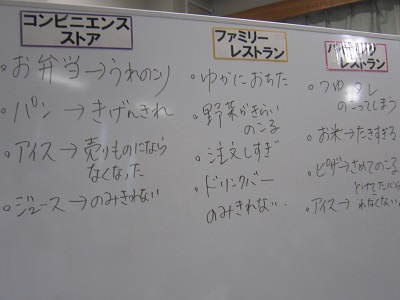 コンビニエンス
ストア
・お弁当→うれのこり
・パン→きげんきれ
・アイス→売りものになら
なくなった
・ジュース→のみきれない
ファミリー
レストラン
・ゆかにおちた
・野菜がきらい
のこる
・注文しすぎ
・ドリンクバー
のみきれない.
レストラン
・つゆ タレ
のこってしまう
・お米→たきすぎる
・ピザ→さめてのこる
とけてたから
・アイス→れなくない